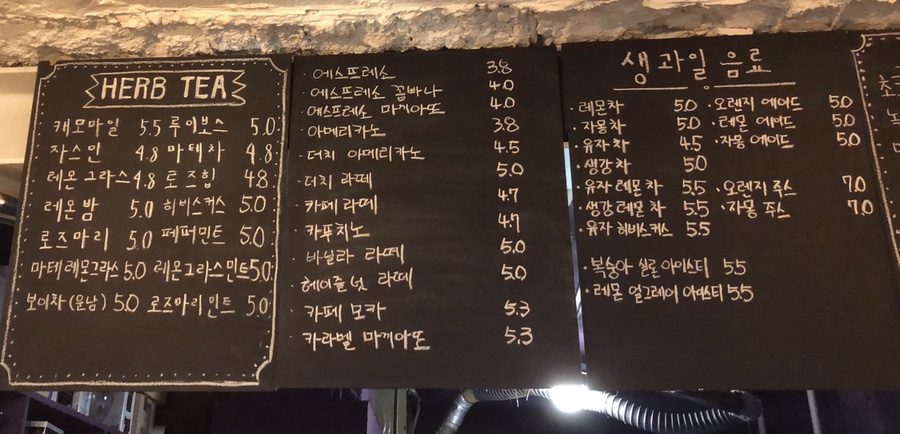 HERB TEA
캐모마일 5.5 루이보스 5.0
자스민 4.8 마테차 4.8
레몬그라스 4.8 로즈힙 4.8
레몬밤 5.0 히비스커스 5.0
로즈마리 5.0 페퍼민트 5.0
마테레몬그라스 5.0 레몬그라스민트 5.0
보이차(운남) 5.0 로즈마리민트 5.0
· 에스프레소 3.8
· 에스프레소 꼼빠나 4.0
· 에스프레소 마끼아또 4.0
· 아메리카노 3.8
· 더치 아메리카노 4.5
· 더치 라떼 5.0
· 카페 라떼 4.7
· 카푸치노 4.7
· 바닐라 라떼 5.0
· 헤이즐넛 라떼 5.0
· 카페 모카 5.3
· 카라멜 마끼아또 5.3
생과일 음료
· 레몬차 5.0 · 오렌지 에이드 5.0
· 자몽차 5.0 · 레몬 에이드 5.0
· 유자차 4.5 · 자몽 에이드 5.0
· 생강차 5.0
· 유자레몬차 5.5 · 오렌지 주스 7.0
· 생강레몬차 5.5 · 자몽 주스 7.0
· 유자 히비스커스 5.5
· 복숭아 실론 아이스티 5.5
· 레몬 얼그레이 아이스티 5.5